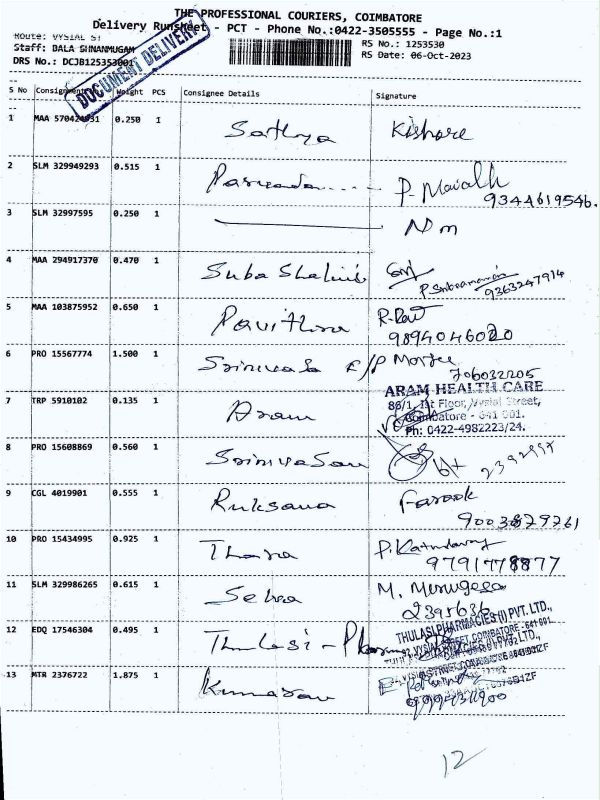 THE PROFESSIONAL COURIERS, COIMBATORE
Delivery Runsheet - PCT - Phone No.:0422-3505555 - Page No.:1
Route: VYSIAL ST
Staff: BALA SHNANMUGAM
DRS No.: DCJB125353001
RS No.: 1253530
RS Date: 06-Oct-2023
DOCUMENT DELIVERY
S No Consignment Weight PCS Consignee Details Signature
1 MAA 0.250 1 Sathya Kishore
2 SLM 329949293 0.515 1 P.
9344619546.
3 SLM 32997595 0.250 1 Nm
4 MAA 294917370 0.470 1 Suba Shalini
P. Subramanian
9363247914
5 MAA 103875952 0.650 1 Pavithra R. Ravi
9894046020
6 PRO 15567774 1.500 1 Srinivasa
706032205
7 TRP 5910102 0.135 1 Aram
ARAM HEALTH CARE
86/1, 1st Floor, Vysial Street,
Coimbatore - 641 001.
Ph: 0422-4982223/24.
8 PRO 15608869 0.560 1 Srinivasan
9 CGL 4019901 0.555 1 Ruksana Farook
9003829261
10 PRO 15434995 0.925 1 Thara
9791778877
11 SLM 329986265 0.615 1 Selva M. Murugesa
2395636
12 EDQ 17546304 0.495 1 Thulasi - Pharma
THULASI PHARMACIES (I) PVT. LTD.,
VYSIAL STREET, COIMBATORE - 641 001.
13 MTR 2376722 1.875 1 Kumaran
12